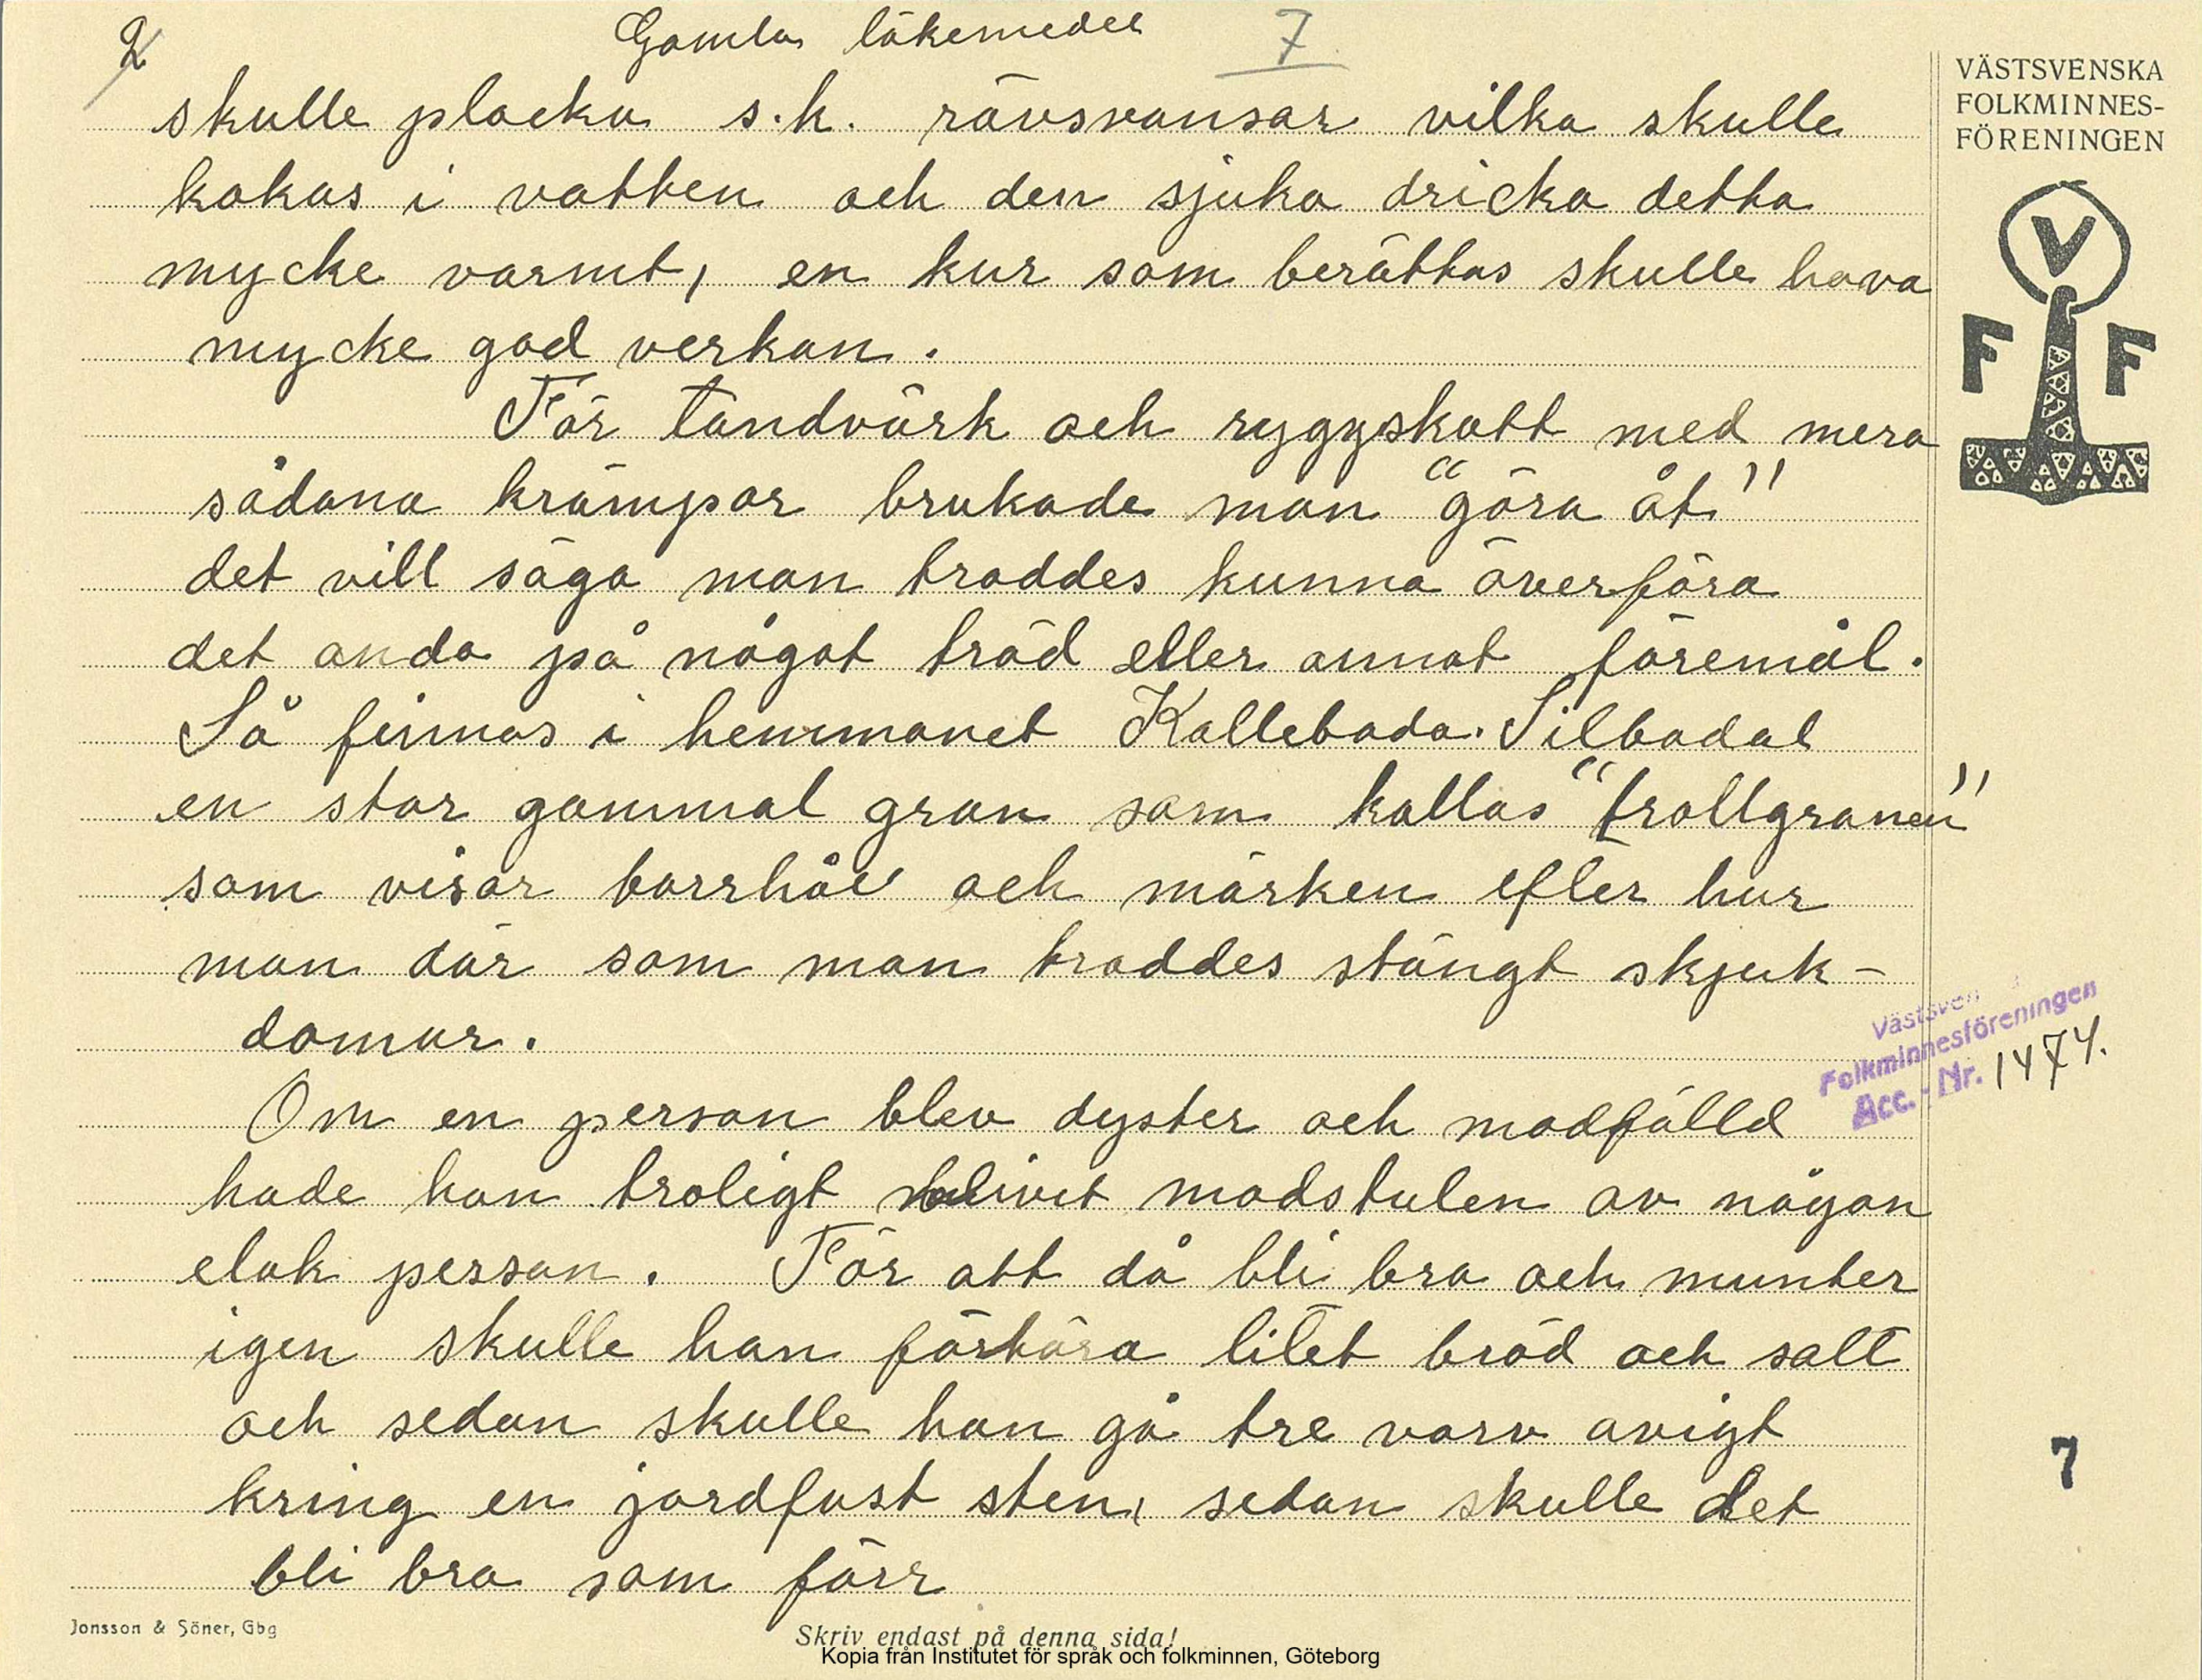 2 Gamla läkemedel 7
VÄSTSVENSKA
FOLKMINNES-
FÖRENINGEN
V
F F
skulle plocka s.k. rävsvansar vilka skulle
kokas i vatten och den sjuka dricka detta
mycke varmt, en kur som berättas skulle hava
mycke god verkan.
För tandvärk och ryggskott med mera
sådana krämpor brukade man "göra åt"
det vill säga man troddes kunna överföra
det onda på något träd eller annat föremål.
Så finnas i hemmanet Kalleboda. Silbodal
en stor gammal gran som kallas "trollgranen"
som visar borrhål och märken efter hur
man där som man troddes stängt skjuk-
domar.
Västsven
Folkminnesföreningen
Acc. - Nr. 1474.
Om en person blev dyster och modfälld
hade han troligt blivit modstulen av någon
elak person. För att då bli bra och munter
igen skulle han förtära litet bröd och salt
och sedan skulle han gå tre varv avigt
kring en jordfast sten, sedan skulle det
bli bra som förr
7
Jonsson & Söner, Gbg
Skriv endast på denna sida!
Kopia från Institutet för språk och folkminnen, Göteborg